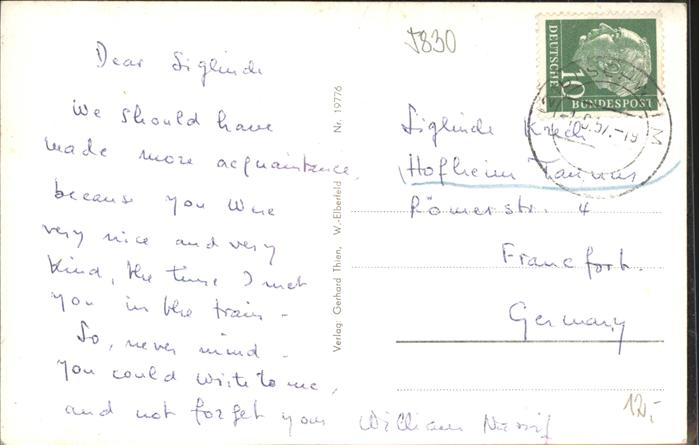 Dear Siglinde
We should have
made more acquaintance,
because you were
very nice and very
kind, the time I met
you in the train -
So, never mind -
you could write to me,
and not forget your William
5830
Nr. 19776
Verlag: Gerhard Thien, W.-Elberfeld
DEUTSCHE
10
BUNDESPOST
57.-19
Siglinde Krech
Hofheim Taunus
Römerstr. 4
Francfort.
Germany
12,-